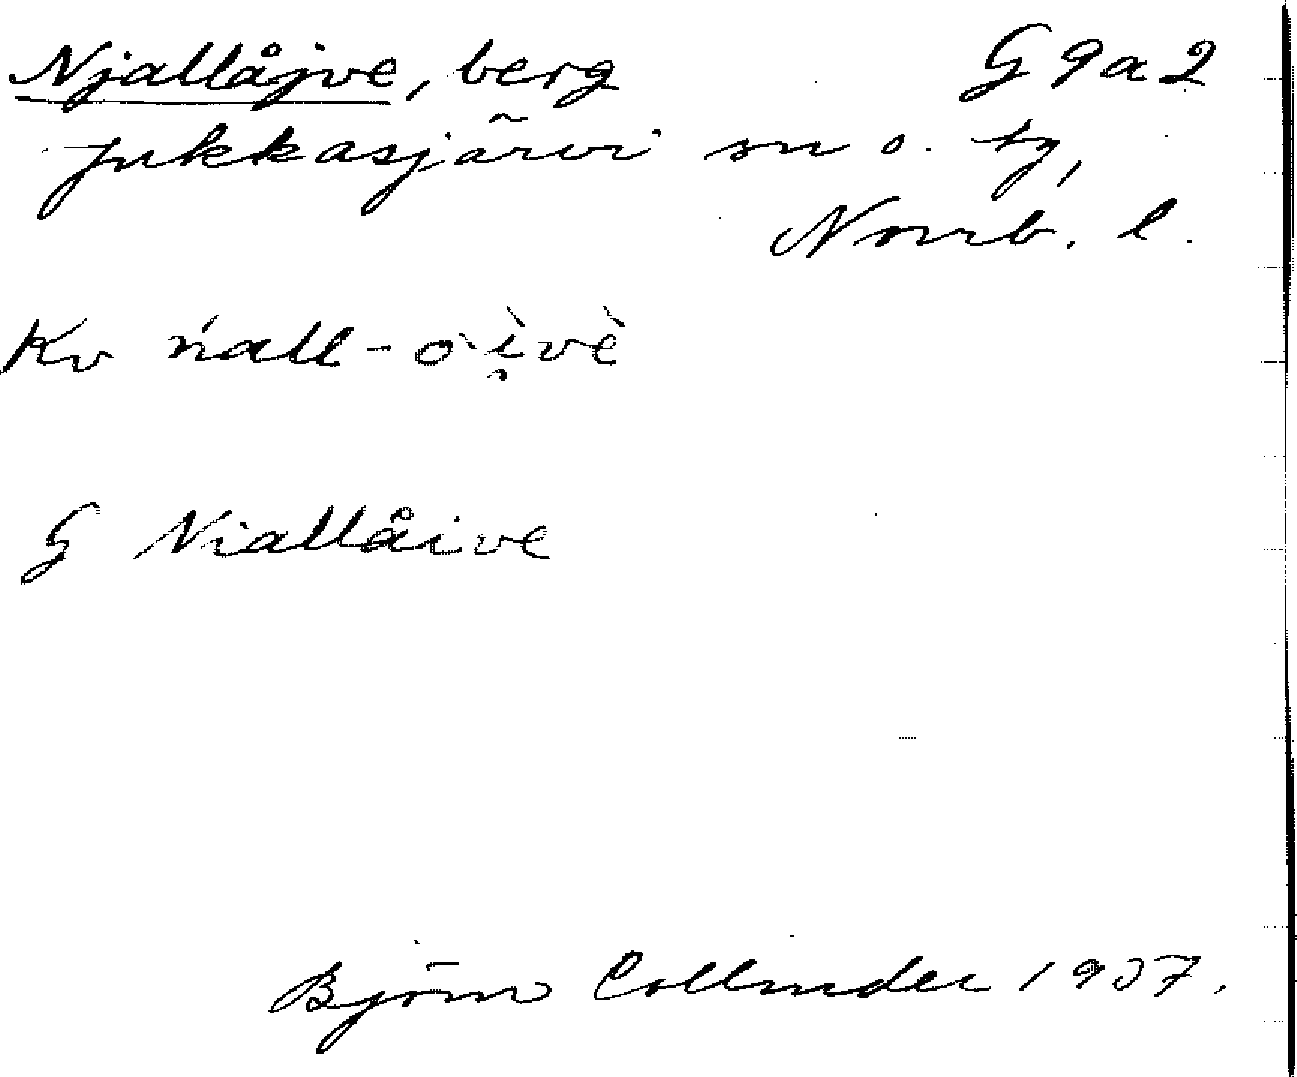 Njallåjve, berg G 9 a 2
Jukkasjärvi sn o. tg,
Norrb. l.
Kv ńall-òì̯vè
G Niallåive
Björn Collinder 1937.